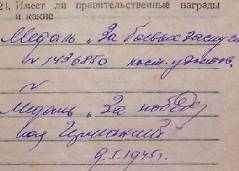 21. Имеет ли правительственные награды
и какие
Медаль „За боевые заслуги
№ 1436850
Медаль „За победу
над Германией
9.5.1945 г.